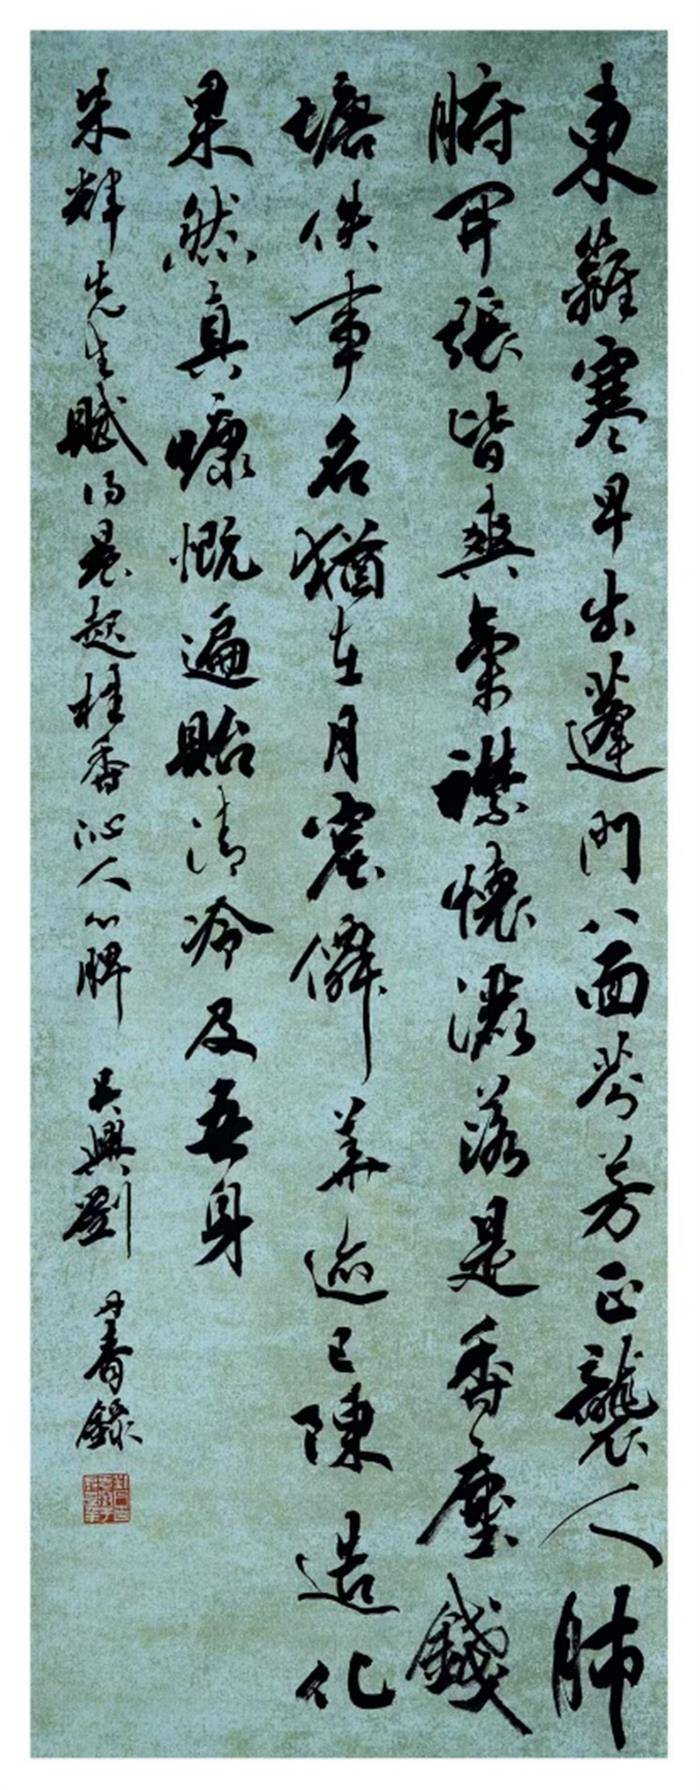 東籬寒早出蓬門八面芬芳正襲人肺
腑開張皆爽氣襟懷灑落是香塵錢
塘佚事名猶在月窟僊迹已陳造化
果然真慷慨遍貽清冷及吾身
朱輝先生賦得晨起桂香沁人心脾 吳興劉 錄